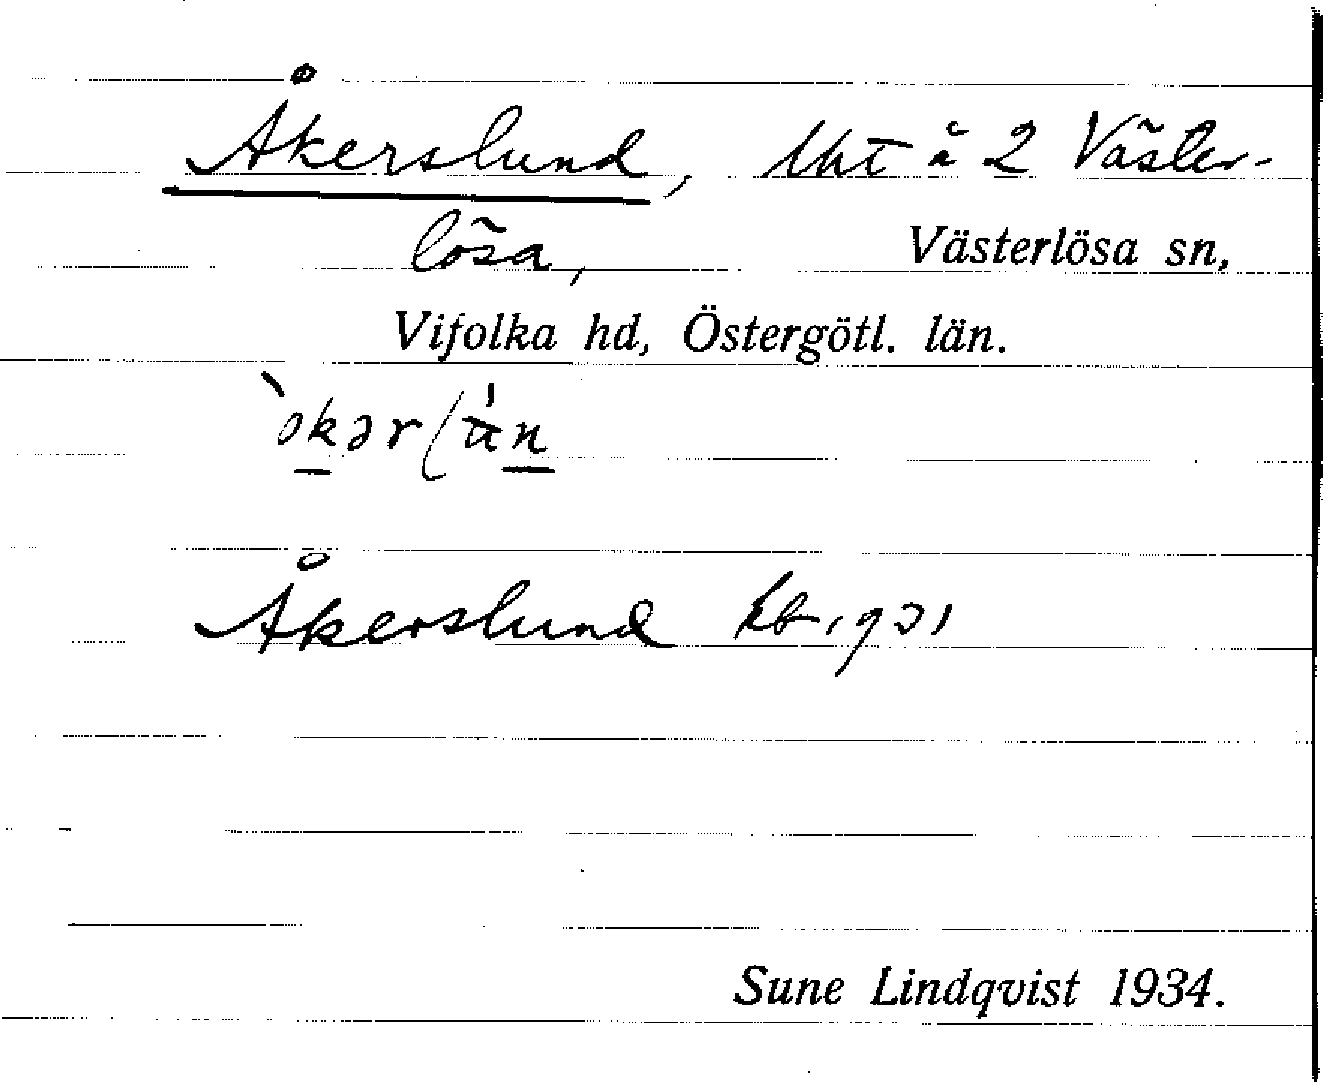 Åkerslund, lht å 2 Väster-
lösa, Västerlösa sn,
Vifolka hd, Östergötl. län.
Åkerslund kb. 1931
Sune Lindqvist 1934.